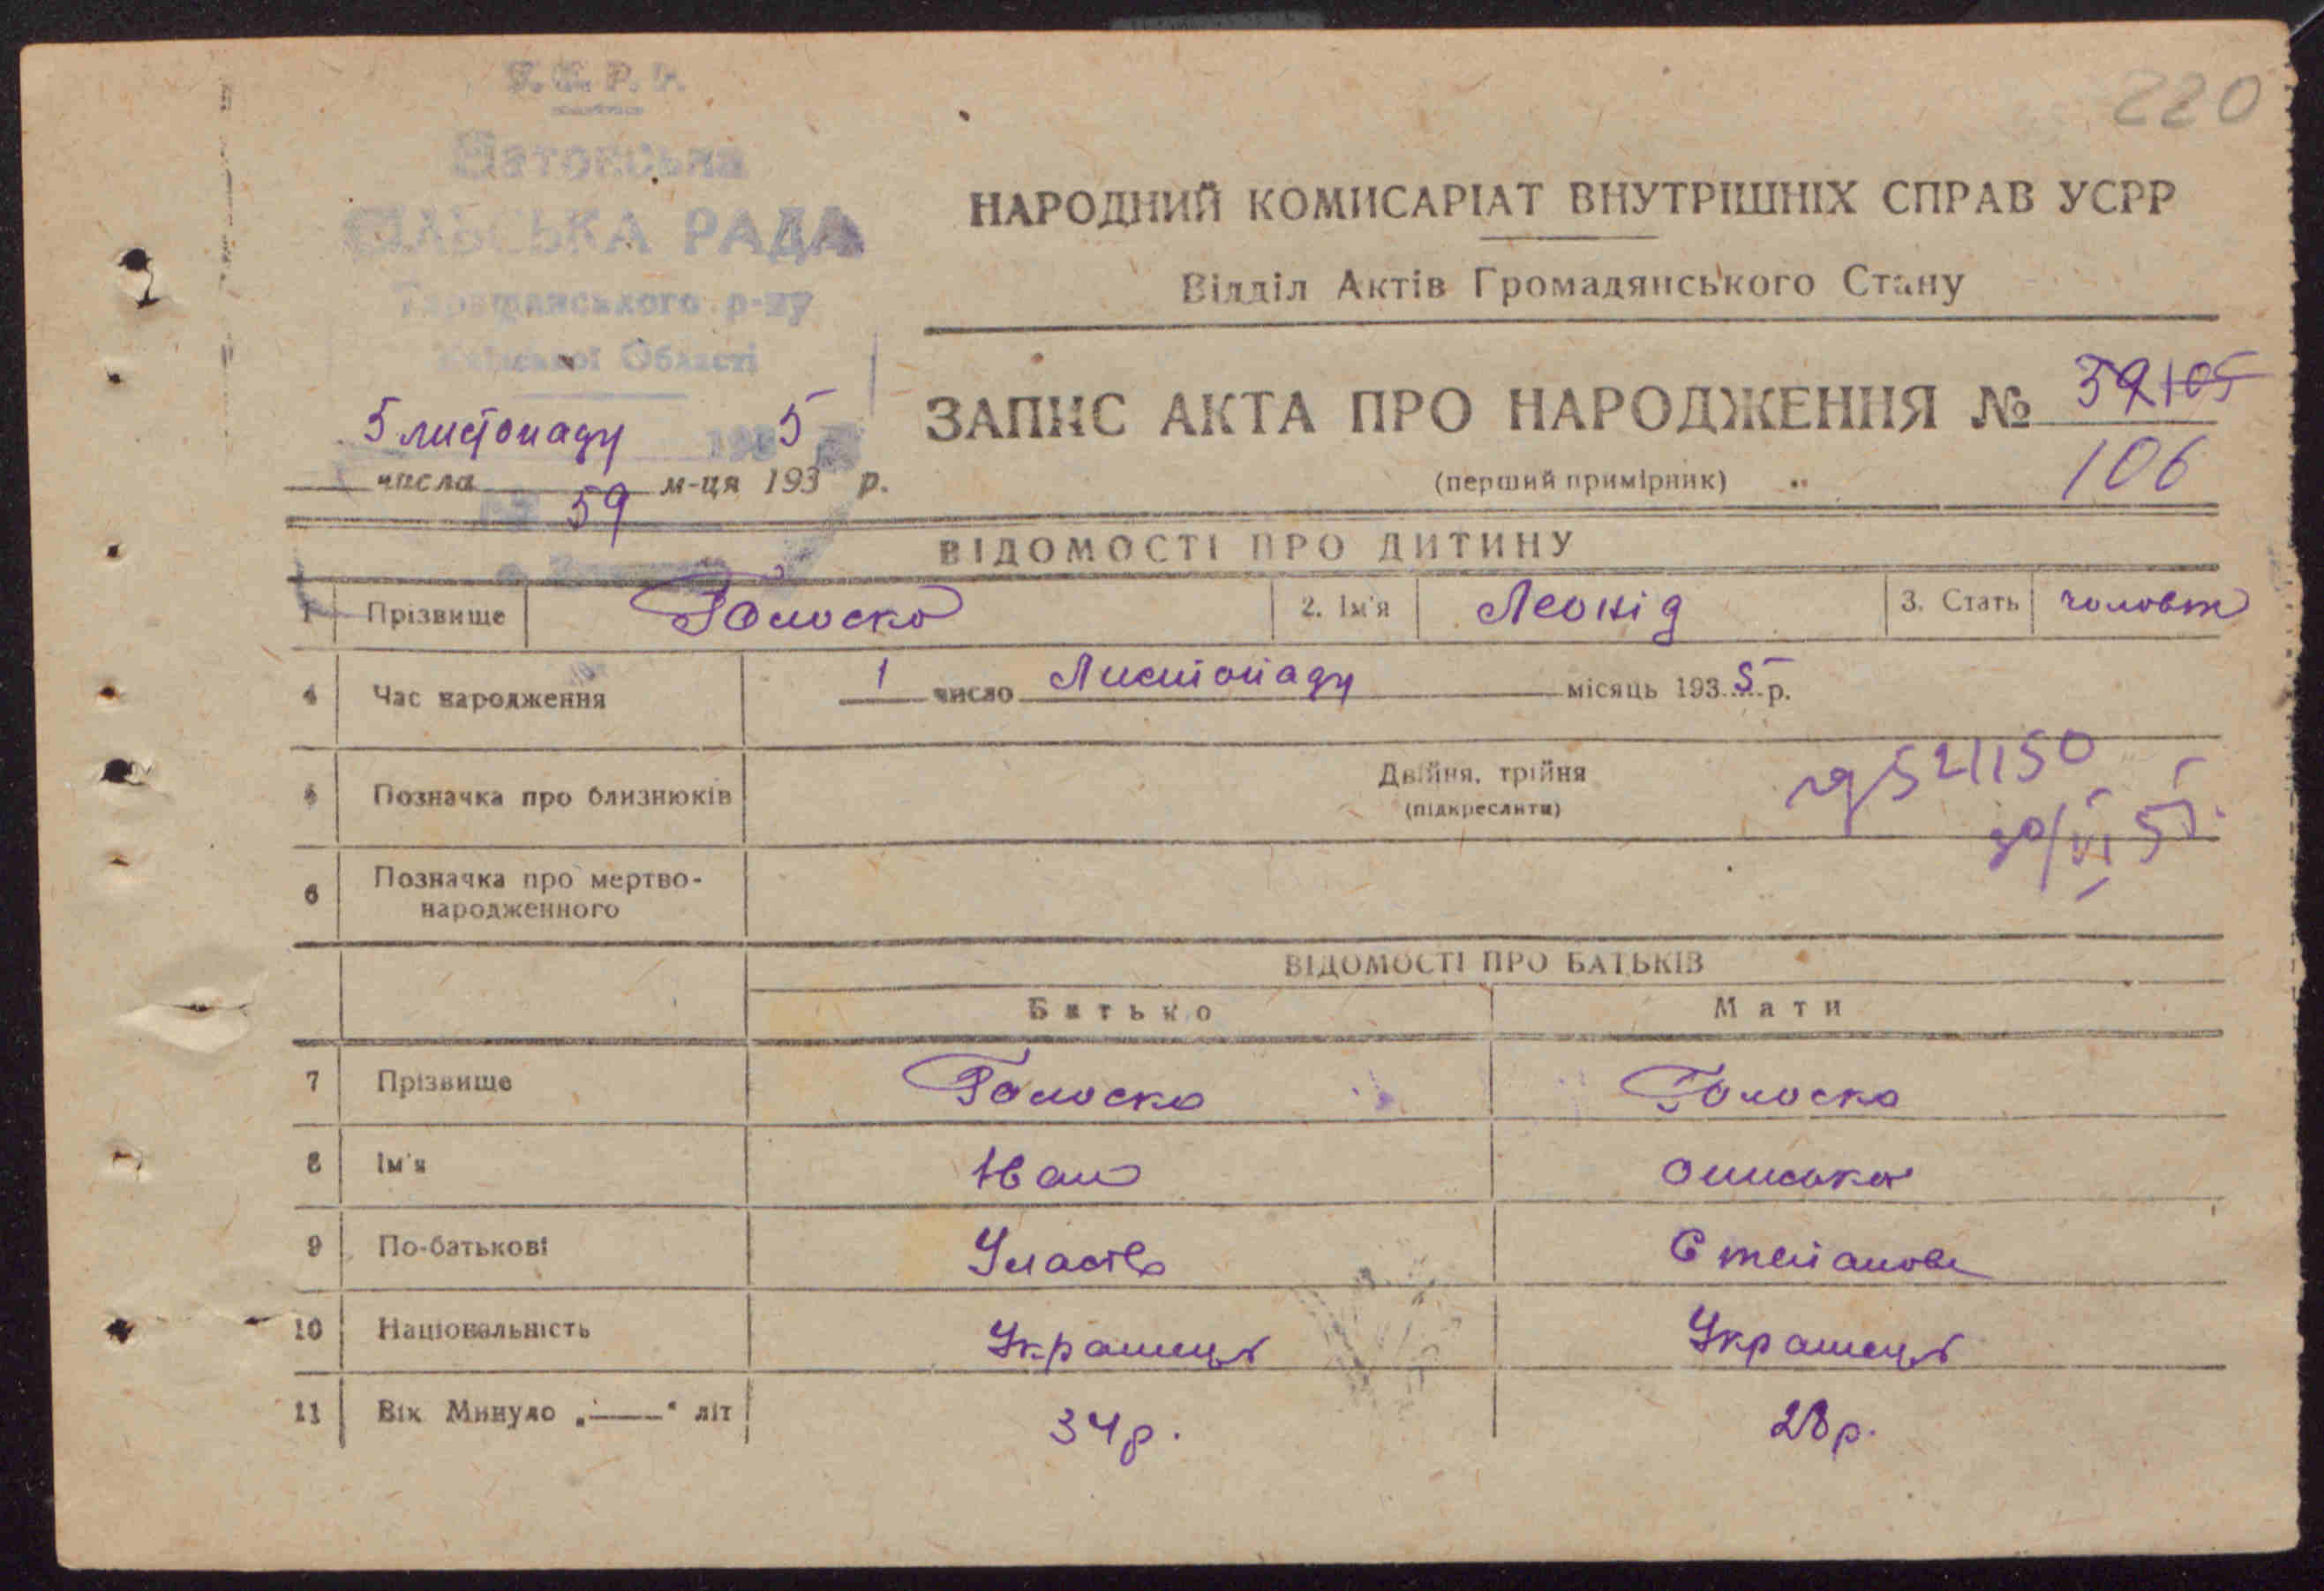 220
У.С.Р.Р.
СІЛЬСЬКА РАДА
Таращанського р-ну
Київської Області
НАРОДНИЙ КОМИСАРІАТ ВНУТРІШНІХ СПРАВ УСРР
Відділ Актів Громадянського Стану
5 листопаду 193 5
числа м-ця 193 р.
59
ЗАПИС АКТА ПРО НАРОДЖЕННЯ № 59 105
(перший примірник)
106
ВІДОМОСТІ ПРО ДИТИНУ
1 Прізвище Голоско 2. Ім'я Леонід 3. Стать
4 Час народження 1 число Листопаду місяць 193 5 р.
5 Позначка про близнюків Двійня, трійня
(підкреслити)
521150
30/VI 55
6 Позначка про мертво-
народженного
ВІДОМОСТІ ПРО БАТЬКІВ
Батько Мати
7 Прізвище Голоско Голоско
8 Ім'я Іван Ониська
9 По-батькові Степанов
10 Національність Українець Українець
11 Вік Минуло „——“ літ 34 р. 28 р.